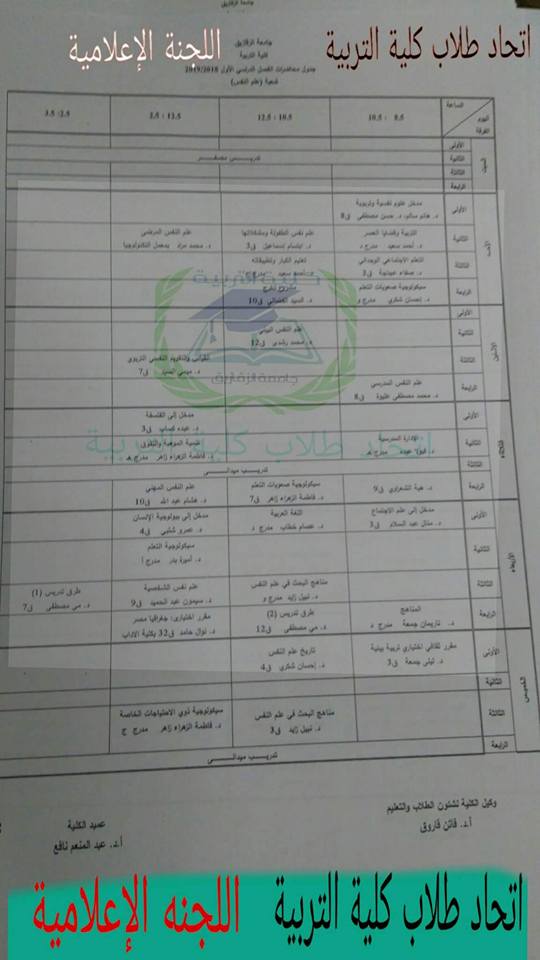 جامعة الزقازيق
اتحاد طلاب كلية التربية اللجنة الإعلامية
جامعة الزقازيق
كلية التربية
جدول محاضرات الفصل الدراسي الأول 2019/2018
شعبة (علم النفس)
الساعة
اليوم
الفرقة
8.5 : 10.5
10.5 : 12.5
12.5 : 2.5
2.5: 3.5
السبت
الأولى
الثانية
تدريس مصغر
الثالثة
الرابعة
الأحد
الأولى
مدخل علوم نفسية وتربوية
د. هانم سالم، د. حسن مصطفى ق8
الثانية
التربية وقضايا العصر
د. أحمد سعيد مدرج د
علم نفس الطفولة ومشكلاتها
د. ابتسام إسماعيل ق3
علم النفس المرضي
د. محمد مراد بمعمل التكنولوجيا
الثالثة
التعلم الاجتماعي الوجداني
د. صفاء عبيدجة ق3
تعليم الكبار وتطبيقاته
د. أحمد سعيد مدرج ج
الرابعة
سيكولوجية صعوبات التعلم
د. إحسان شكري مدرج و
مشروع تخرج
د. السيد ق5
الاثنين
الأولى
الثانية
علم النفس البيئي
د. محمد رشدي ق12
الثالثة
القياس والتقويم النفسي التربوي
د. ميمي السيد ق7
الرابعة
علم النفس المدرسي
د. محمد مصطفى عليوة ق8
كلية التربية
جامعة الزقازيق
اتحاد طلاب كلية التربية
الثلاثاء
الأولى
مدخل إلى الفلسفة
د. عبده كساب ق3
الثانية
الإدارة المدرسية
د. فيولا عبده مدرج هـ
تنمية الموهبة والتفوق
د. فاطمة الزهراء زاهر مدرج هـ
الثالثة
تدريب ميداني
الرابعة
د. هبة الشعراوي ق9
سيكولوجية صعوبات التعلم
د. فاطمة الزهراء زاهر ق7
علم النفس المهني
د. هشام عبد الله ق10
الأربعاء
الأولى
مدخل إلى علم الاجتماع
د. منال عبد السلام ق3
اللغة العربية
د. عصام خطاب مدرج د
مدخل إلى بيولوجية الإنسان
د. عمرو شلبي ق4
الثانية
سيكولوجية التعلم
د. أميرة بدر مدرج أ
الثالثة
مناهج البحث في علم النفس
د. نبيل زايد مدرج و
علم نفس الشخصية
د. سيمون عبد الحميد ق9
طرق تدريس (1)
د. مي مصطفى ق7
الرابعة
المناهج
د. ناريمان جمعة مدرج د
طرق تدريس (2)
د. مي مصطفى ق12
مقرر اختياري: جغرافيا مصر
د. نوال حامد ق32 بكلية الآداب
الخميس
الأولى
مقرر ثقافي اختياري تربية بيئية
د. ليلى جمعة ق3
تاريخ علم النفس
د. إحسان شكري ق4
الثانية
الثالثة
مناهج البحث في علم النفس
د. نبيل زايد ق3
سيكولوجية ذوي الاحتياجات الخاصة
د. فاطمة الزهراء زاهر مدرج ج
الرابعة
تدريب ميداني
وكيل الكلية لشئون الطلاب والتعليم
أ.د. فاتن فاروق
عميد الكلية
أ.د. عبد المنعم نافع
اتحاد طلاب كلية التربية اللجنه الإعلامية